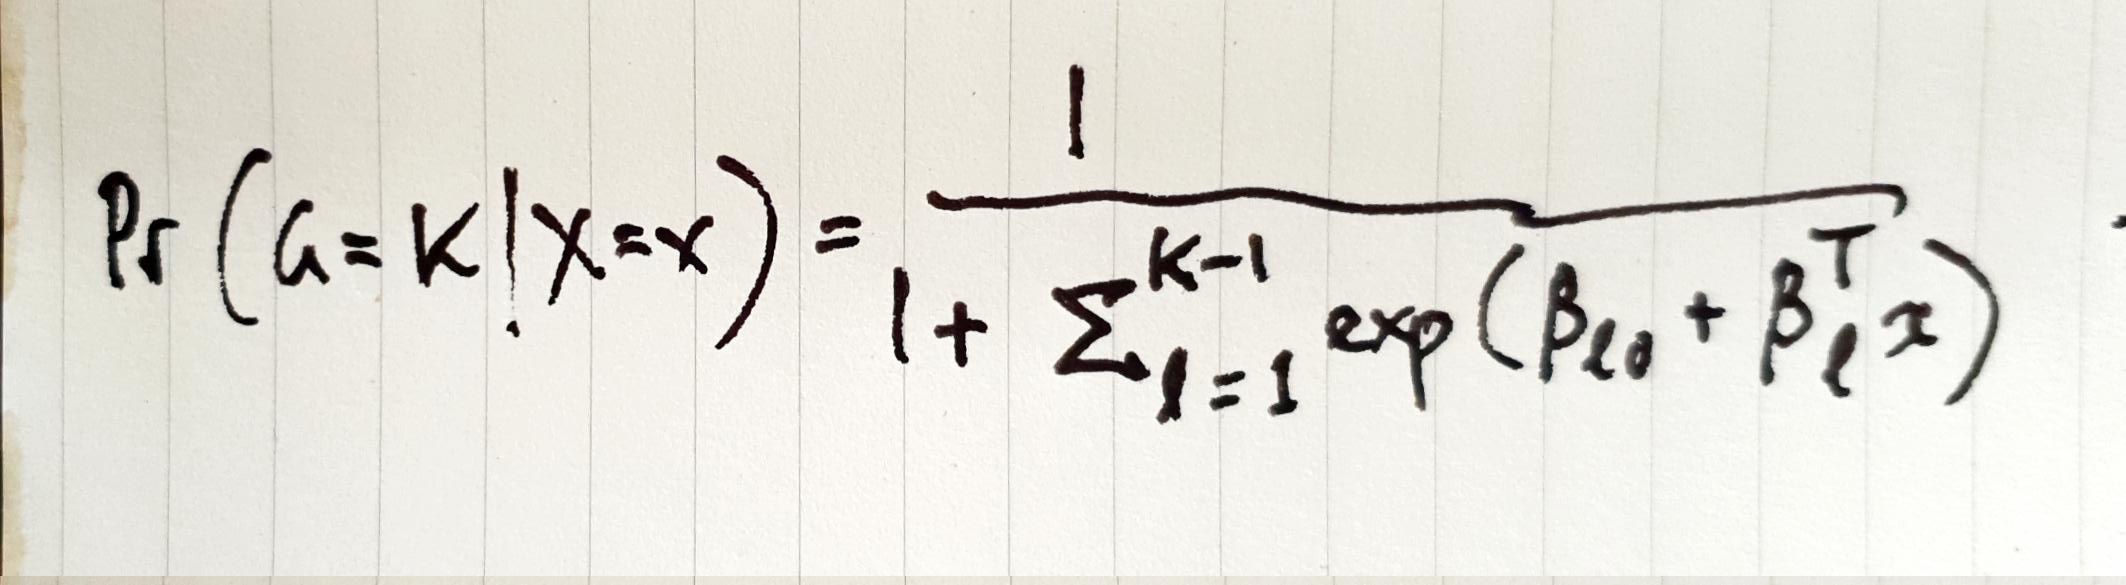 Pr(G=K|X=x) = \frac{1}{1 + \sum_{l=1}^{K-1} exp(β_{l0} + β_l^T x)}